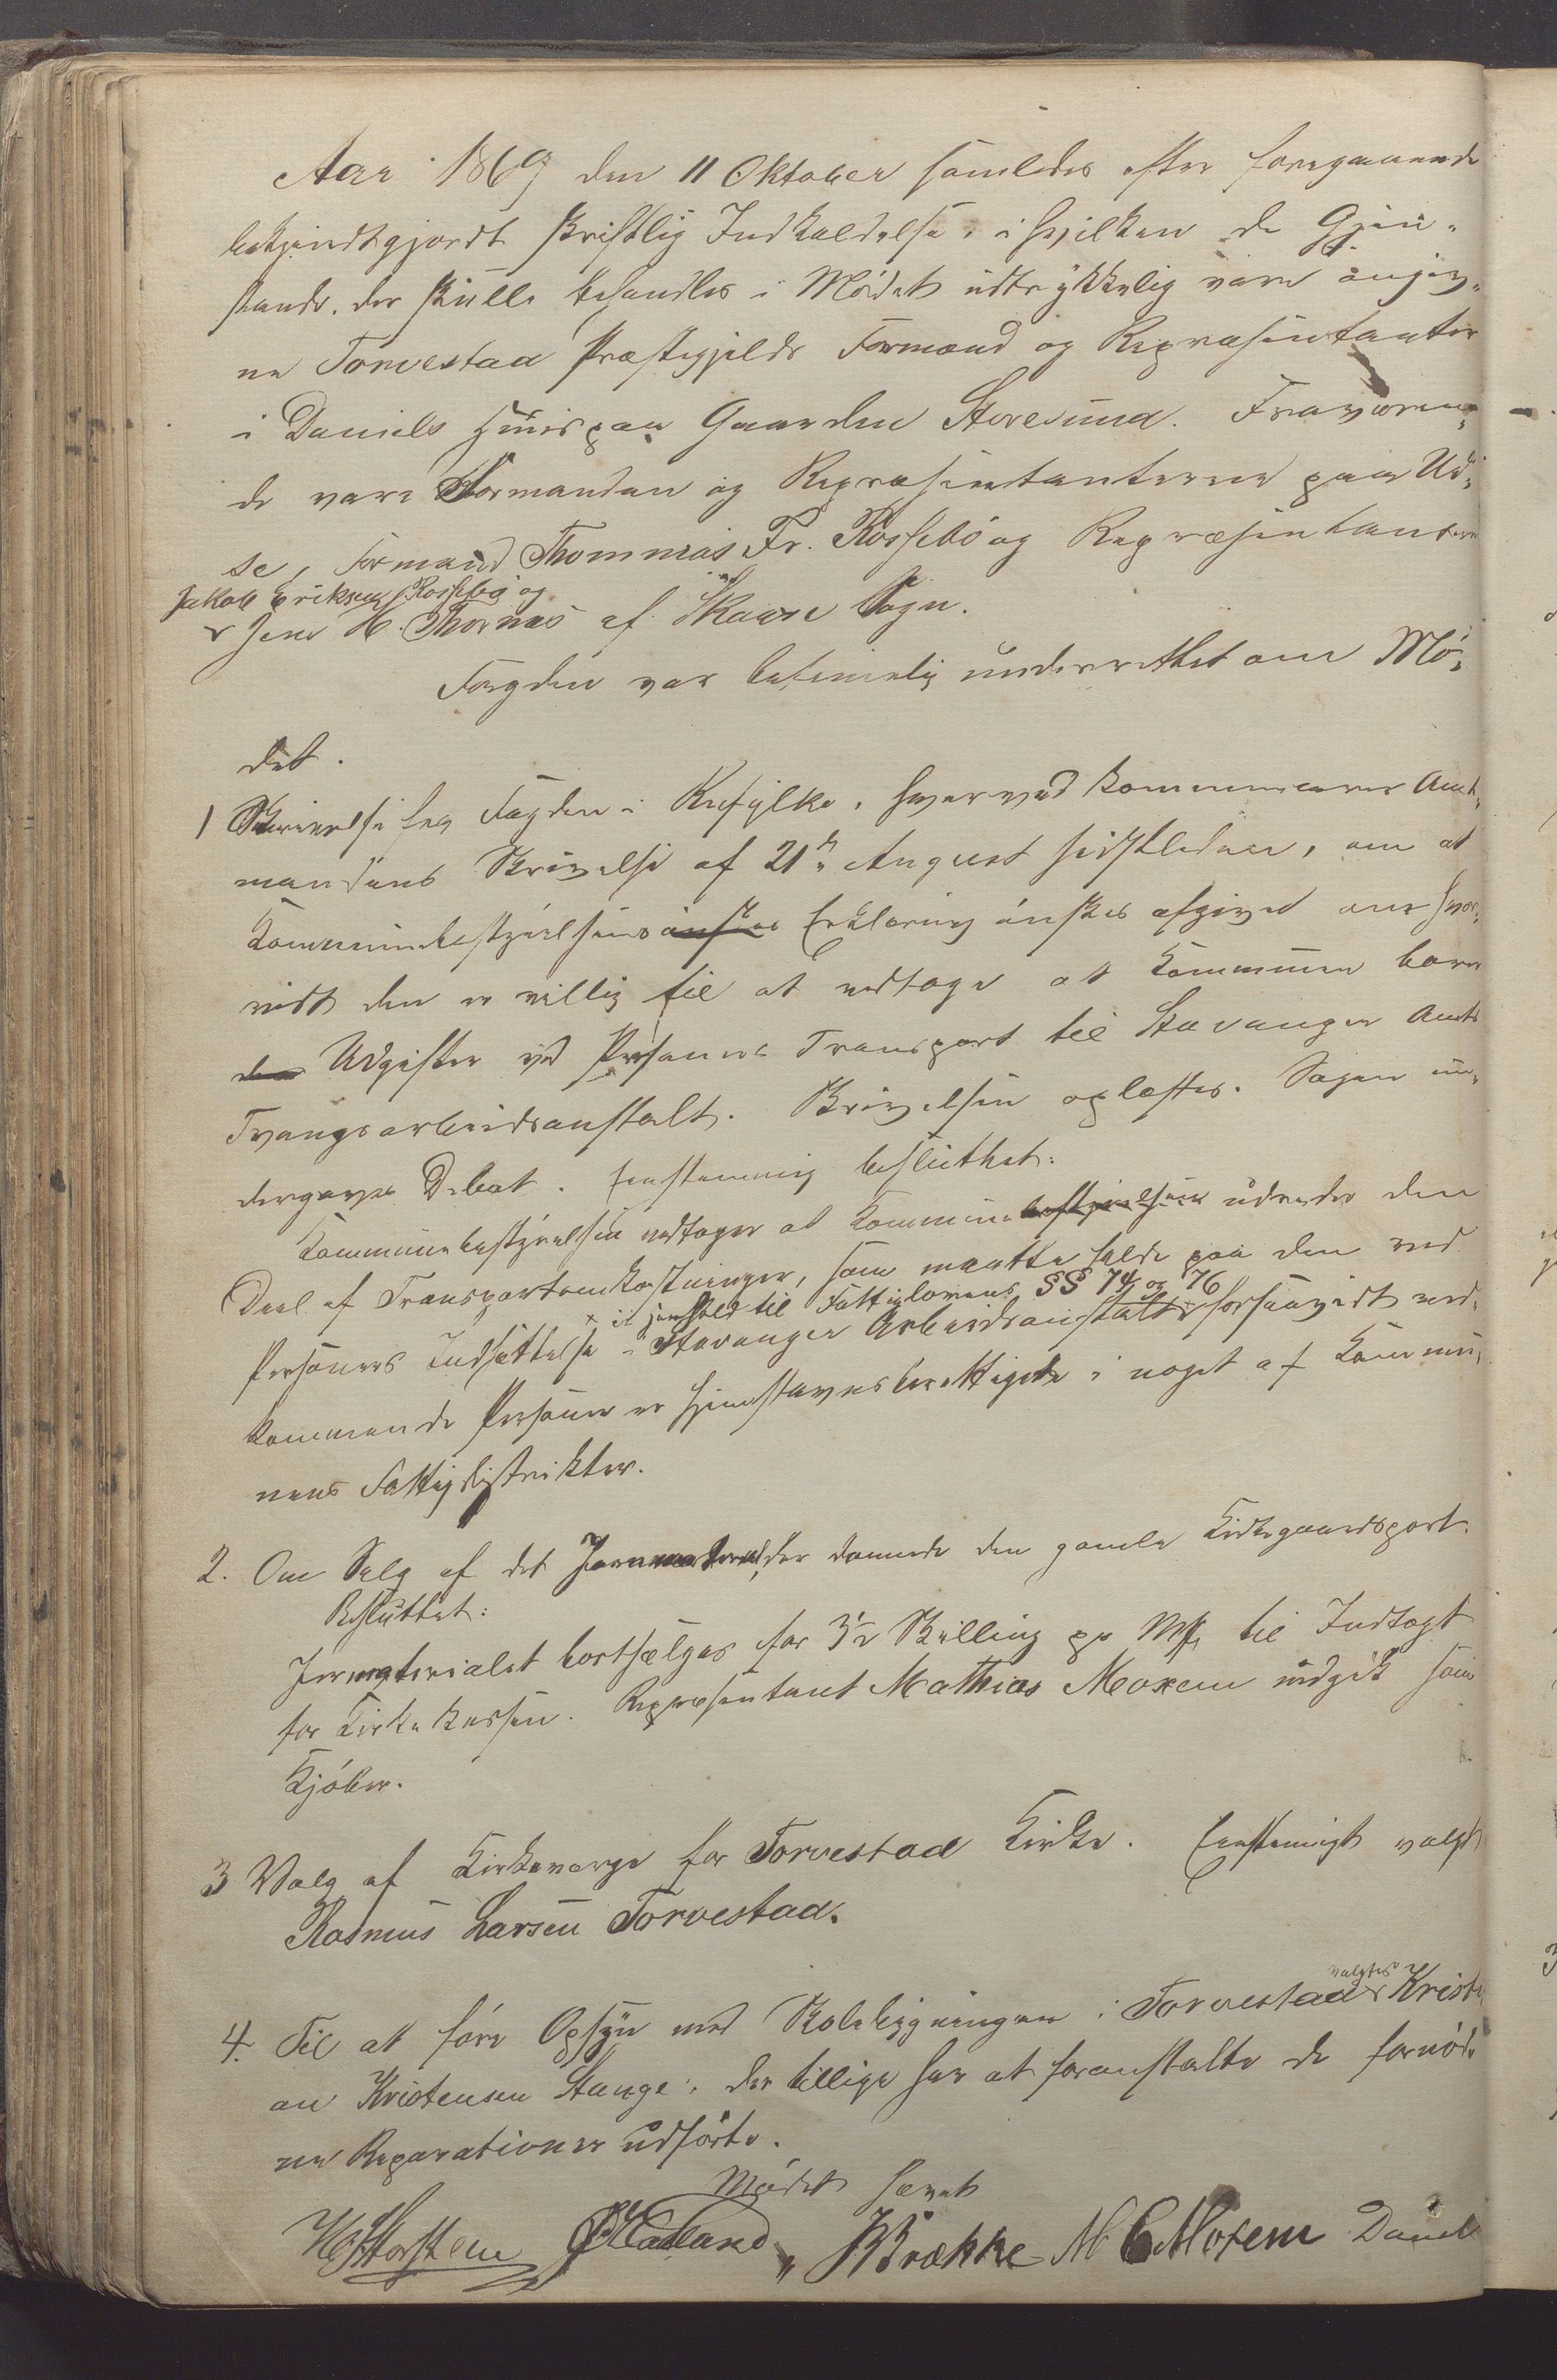 Aar 1869 den 11 Oktober samledes efter foregaaende
bekjendtgjordt skriftlig Indkaldelse, i hvilken de Gjen-
stande, der skulle behandles i Mødet udtrykkelig vare angiv-
ne Torvestad Præstegjelds Formænd og Repræsentanter
i Daniels Huus paa Gaarden Storesund. Fraværen-
de vare Formanden og Repræsentanterne paa Ud-
se, Formand Thommas Fr. Rossebø og Repræsentanterne
Jakob Eriksen Rossebø og
Jens H. Thornes af Skaare Sogn.
Fogden var betimelig underrettet om Mø-
det.
1 Skrivelse fra Fogden i Ryfylke, hvorved kommunicerer Amt-
mandens Skrivelse af 21de August sidstleden, om at
Kommunebestyrelsens ønskes Erklæring ønskes afgivet om hvor-
vidt den er villig til at vedtage at Kommunen bærer
de Udgifter ved Persaners Transport til Stavanger Amts
Tvangsarbeidsanstalt. Skrivelsen oplæstes. Sagen un-
dergaves Debat. Eenstemmig besluttet:
Kommunebestyrelsen vedtager at Kommunebestyrelsen udreder den
Deel af Transportomkostninger, som maatte falde paa den ved
x i henhold til Fattiglovens §§ 74 og 76
Personers Indsættelse i Stavanger Arbeidsanstalt x forsaavidt ved-
kommende Personer er hjemstavnsberettigede i noget af Kommu-
nens Fattigdistrikter.
2. Om Salg af det Jernmateriel, der dannede den gamle Kirkegaardsport.
Besluttet:
Jernmaterialet bortsælges for 3½ Skilling pr Mk, til Indtægt
for Kirkekassen. Repræsentant Mathias Moxem indgik som
Kjøber.
3 Valg af Kirkeværge for Torvestad Kirke. Eenstemigt valgt
Rasmus Larsen Torvestad.
valgtes
4. Til at føre Opsyn med Skolebygningen i Torvestad x Kristi
an Kristensen Stange, der tillige har at foranstalte de fornød-
ne Reparationer udførte.
Mødet hævet
Hatland Brække M C Moxem Daniel